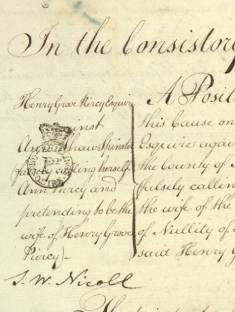 In the Consistory
Henry Grove Piercy Esquire
against
Ann Shaw Spinster
falsely calling herself
Ann Piercy and
pretending to be the
wife of Henry Grove
Piercy
S. W. Nicoll
A Posit
this Cause on
Esquire again
the County of
falsely callen
the wife of the
of Nullity of
said Henry G